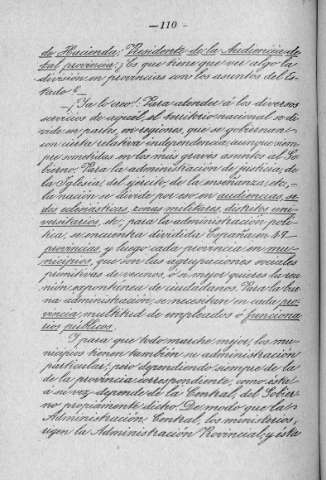 —110—
de Hacienda; Presidente de la Audiencia de
tal provincia. ¿Es que tiene que ver algo la
división en provincias con los asuntos del Es-
tado?
—¡Ya lo creo! Para atender á los diversos
servicios de aquél, el territorio nacional se di-
vide en partes, ó regiones, que se gobiernan
con cierta relativa independencia, aunque siem-
pre sometidas en los más graves asuntos al Go-
bierno. Para la administración de justicia, de
la Iglesia, del ejército, de la enseñanza, etc.,
la nación se divide por eso en audiencias, se-
des eclesiásticas, zonas militares, distritos uni-
versitarios, etc.; para la administración polí-
tica, se encuentra dividida España en 49
provincias, y luego cada provincia en mu-
nicipios, que son las agrupaciones sociales
primitivas de vecinos, ó si mejor quieres la reu-
nión espontánea de ciudadanos. Para la bue-
na administración, se necesitan en cada pro-
vincia, multitud de empleados ó funciona-
rios públicos.
Y para que todo marche mejor, los mu-
nicipios tienen también su administración
particular; pero dependiendo siempre de la
de la provincia correspondiente, como ésta
á su vez depende de la Central, del Gobier-
no propiamente dicho. De modo que la
Administración Central, los ministerios,
rigen la Administración Provincial, y ésta